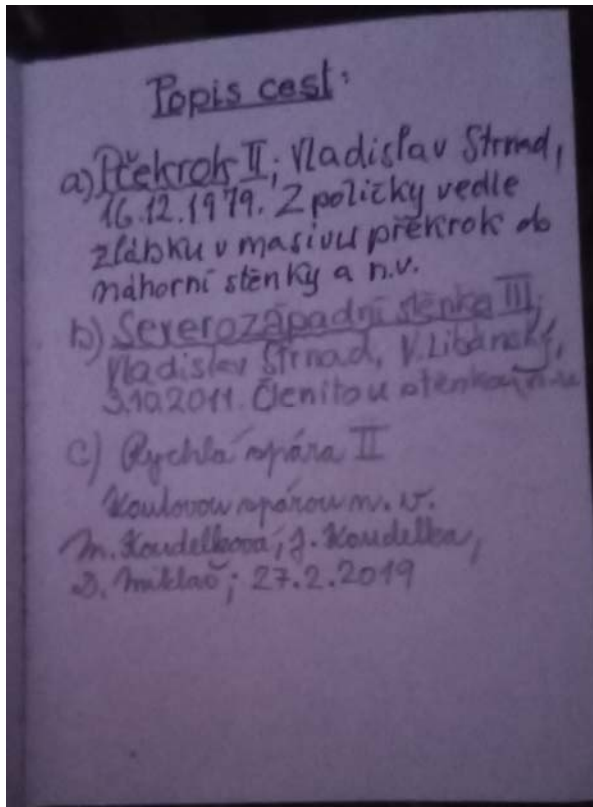 Popis cest:
a) Překrok II; Vladislav Strnad,
16.12.1979. Z poličky vedle
zlábku v masivu překrok do
náhorní stěnky a n.v.
b) Severozápadní stěnka III;
Vladislav Strnad, V. Libánský,
3.10.2011. Členitou stěnkou n.v.
c) Rychlá spára II
Koutovou spárou n. v.
M. Koudelková, J. Koudelka,
D. Miklač; 27.2.2019